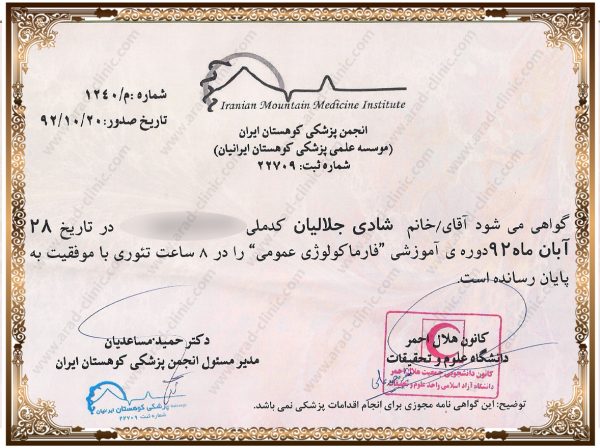 Iranian Mountain Medicine Institute
شماره: م/۱۲۴۰
تاریخ صدور: ۹۲/۱۰/۲۰
انجمن پزشکی کوهستان ایران
(موسسه علمی پزشکی کوهستان ایرانیان)
شماره ثبت: ۲۲۷۰۹
گواهی می شود آقای/خانم شادی جلالیان کدملی در تاریخ ۲۸
آبان ماه ۹۲ دوره ی آموزشی "فارماکولوژی عمومی" را در ۸ ساعت تئوری با موفقیت به
پایان رسانده است.
کانون هلال احمر
دانشگاه علوم و تحقیقات
کانون دانشجویی جمعیت هلال احمر
دانشگاه آزاد اسلامی واحد علوم و تحقیقات
دکتر حمید مساعدیان
مدیر مسئول انجمن پزشکی کوهستان ایران
موسسه پزشکی کوهستان ایرانیان
شماره ثبت ۲۲۷۰۹
توضیح: این گواهی نامه مجوزی برای انجام اقدامات پزشکی نمی باشد.
www.arad-clinic.com